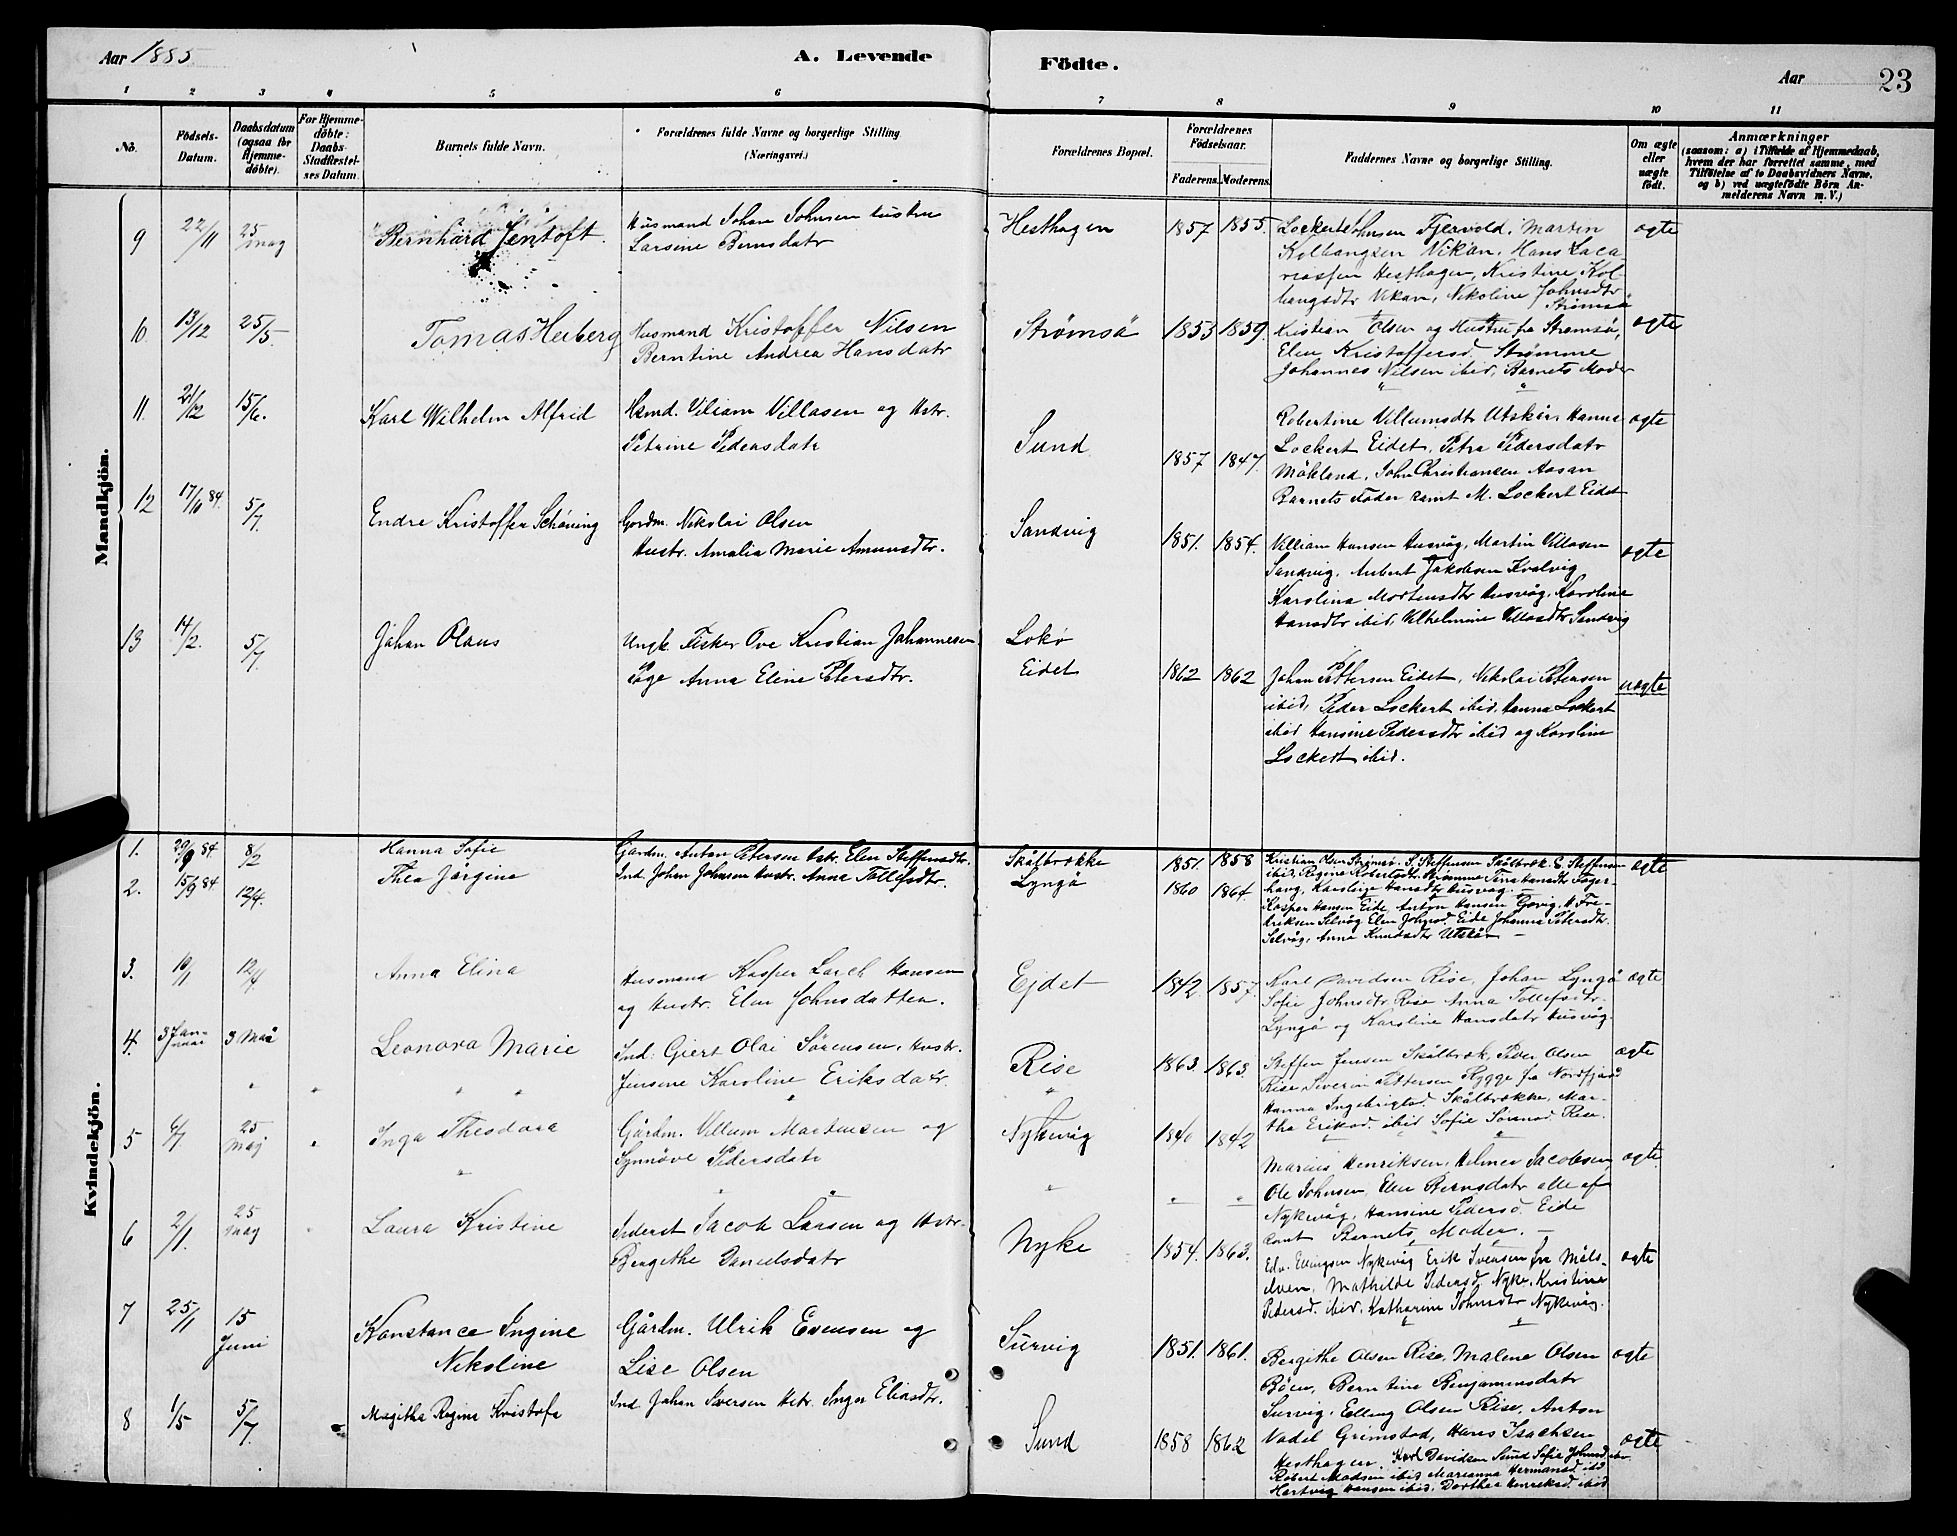 Aar 1885
A. Levende Födte.
Aar 23
1 2 3 4 5 6 7 8 9 10 11
No.
Födsels-Datum.
Daabsdatum (ogsaa for Hjemme-döbte).
For Hjemme-döbte: Daabs-Stadfæstel-ses Datum.
Barnets fulde Navn.
Forældrenes fulde Navne og borgerlige Stilling (Næringsvei.)
Forældrenes Bopæl.
Forældrenes Födselsaar.
Faderens. Moderens.
Faddernes Navne og borgerlige Stilling.
Om ægte eller uægte födt.
Anmærkninger
(saasom: a) i Tilfælde af Hjemmedaab,
hvem der har forrettet samme, med
Tilföielse af to Daabsvidners Navne,
og b) ved uægtefödte Börn An-
melderens Navn m. V.)
Mandkjön.
9 22/11 25 maj Bernhard Jentoft. Husmand Johan Johnsen hustru Hesthagen 1857 1855. Martin ægte
Larsine Berntsdatr
Hesthagen, Kristine Kol-
Vikan, Nikoline Johnsdtr
Strømsø
10. 13/12 25/5. Tomas Heiberg Husmand Kristoffer Nilsen Strømsö 1853 1859. Kristian Olsen og Hustru fra Strømsø, ægte
Berntine Andrea Hansdatr Elen Kristoffersd. Strømme
Johannes Nilsen ibid, Barnets Moder
11. 21/12 15/6. Karl Wilhelm Alfrid Hsmd. Viliam Villasen og Hstr. Sund 1857 1847. Robertine Villumsdtr Utskår, Hanna ægte
Petrine Pedersdatr Lockert Eidet, Petra Pedersdatr
John Christiansen Aasan
Barnets Fader samt M. Lockert Eidet
12 17/10 84. 5/7. Endre Kristoffer Schøning Gordm. Nikolai Olsen Sandvig 1851. 1854. Villiam Hansen Husvåg, Martin Villasen ægte
Hustr. Amalia Marie Amunsdtr. Sandvig, Jakobsen Kvalvig
Karolina Mortensdtr Husvåg, Karoline
Hansdtr ibid, Vilhelmine Villasdtr Sandvig
13 14/2. 5/7 Johan Olaus Ungk. Fisker Ove Kristian Johannesen Lokø
Pige Anna Eline Petersdtr. Eidet 1862 1862 Johan Pettersen Eidet, Nikolai Petersen uægte
ibid, Peder Lockert ibid, Hanna Lockert
ibid Hansine Pedersdtr ibid og Karoline
Lockert ibid.
Kvindekjön.
1. 29/9 84. 8/2 Hanna Sofie Gårdm. Anton Petersen Hstr. Elen Steffensdtr. Skålbrække 1851. 1858 Kristian Olsen Strømsö. S. Steffensen Skålbræk. E. Steffensen ægte
ibid, Regine Robertsdtr. Strømme Tina Hansdtr Fager-
2. 15/9 84 12/4. Thea Jørgine Ind. Johan Johnsen Hustr. Anna Tollefsdtr. Lyngö 1860 1864. hang, Karoline Hansdtr Husvåg. —
Kasper Hansen Eide, Anton Hansen H Fre-
driksen Selvåg Elen Johnsd. Eide Johanna Petersdtr.
Selvåg, Anna Knudsdtr Utskår —
3. 10/1 12/4 Anna Elina Husmand Kasper Lorch Hansen Ejdet 1842 1857. Karl Davidsen Rise, Johan Lyngö ægte
og Hustr. Elen Johnsdatter. Sofie Johnsdtr Rise Anna Tollefsdtr.
Lyngö og Karoline Hansdatr Husvåg.
4. 3 Januar 3 Mai Leonora Marie Ind: Gjert Olai Sörensen, Hustr. Rise 1863. 1863. Steffen Jensen Skålbræk, Peder Olsen ægte
Jensine Karoline Eriksdatr. Rise Severin Pettersen Rygge fra Nordfjord
Hanna Ingebrigtsd. Skålbrække, Mar-
tha Eriksd. ibid Sofie Sörensd. Rise.
5 6/1 25 Maj Inga Theodora Gårdm. Villum Martinsen og Nykvåg 1840 1842
Synnöve Pedersdatr Marius Henriksen, Helmer Jacobsen, ægte.
Ole Johnsen, Elen Berntsdatr alle af
Nykvåg, Hansine Pedersd. Eide
samt Barnets Moder. —
6 2/1. 25 maj Laura Kristine Inderst Jacob Larsen og Hstr. Nyke 1854. 1863. Edv. Ellingsen Nykvåg Erik Ivensen fra Måls- ægte
Bergithe Danielsdatr elven, Mathilde Pedersd. Nyke, Kristine
Pedersd. ibid, Katharine Johnsdtr Nykvåg.
7 25/1 15 Juni Konstance Ingine Gårdm. Ulrik Evensen og Survig 1851. 1861. Bergithe Olsen Rise, Malene Olsen ægte
Nikoline Lise Olsen Böen, Berntine Benjaminsdatr
Survig. Elling Olsen Rise, Anton
8 1/5 5/7. Magitha Regine Kristofa Ind. Johan Iversen Hstr. Inger Eliasdtr. Sund 1858 1862 Vadel Grimstad, Hans Isachsen ægte
Hesthagen. Karl Davidsen Sund Sofie Johnsd ibid
Robert Madsen ibid Marianna Hermansd ibid
Hartvig Hansen ibid, Dorthea Henriksd. ibid